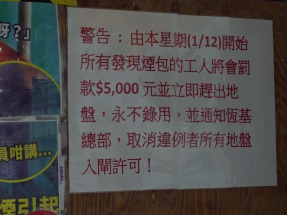 呀?」
警告：由本星期(1/12)開始
所有發現煙包的工人將會罰
款$5,000 元並立即趕出地
盤，永不錄用，並通知恆基
總部，取消違例者所有地盤
入閘許可！
員咁講...
煙引起